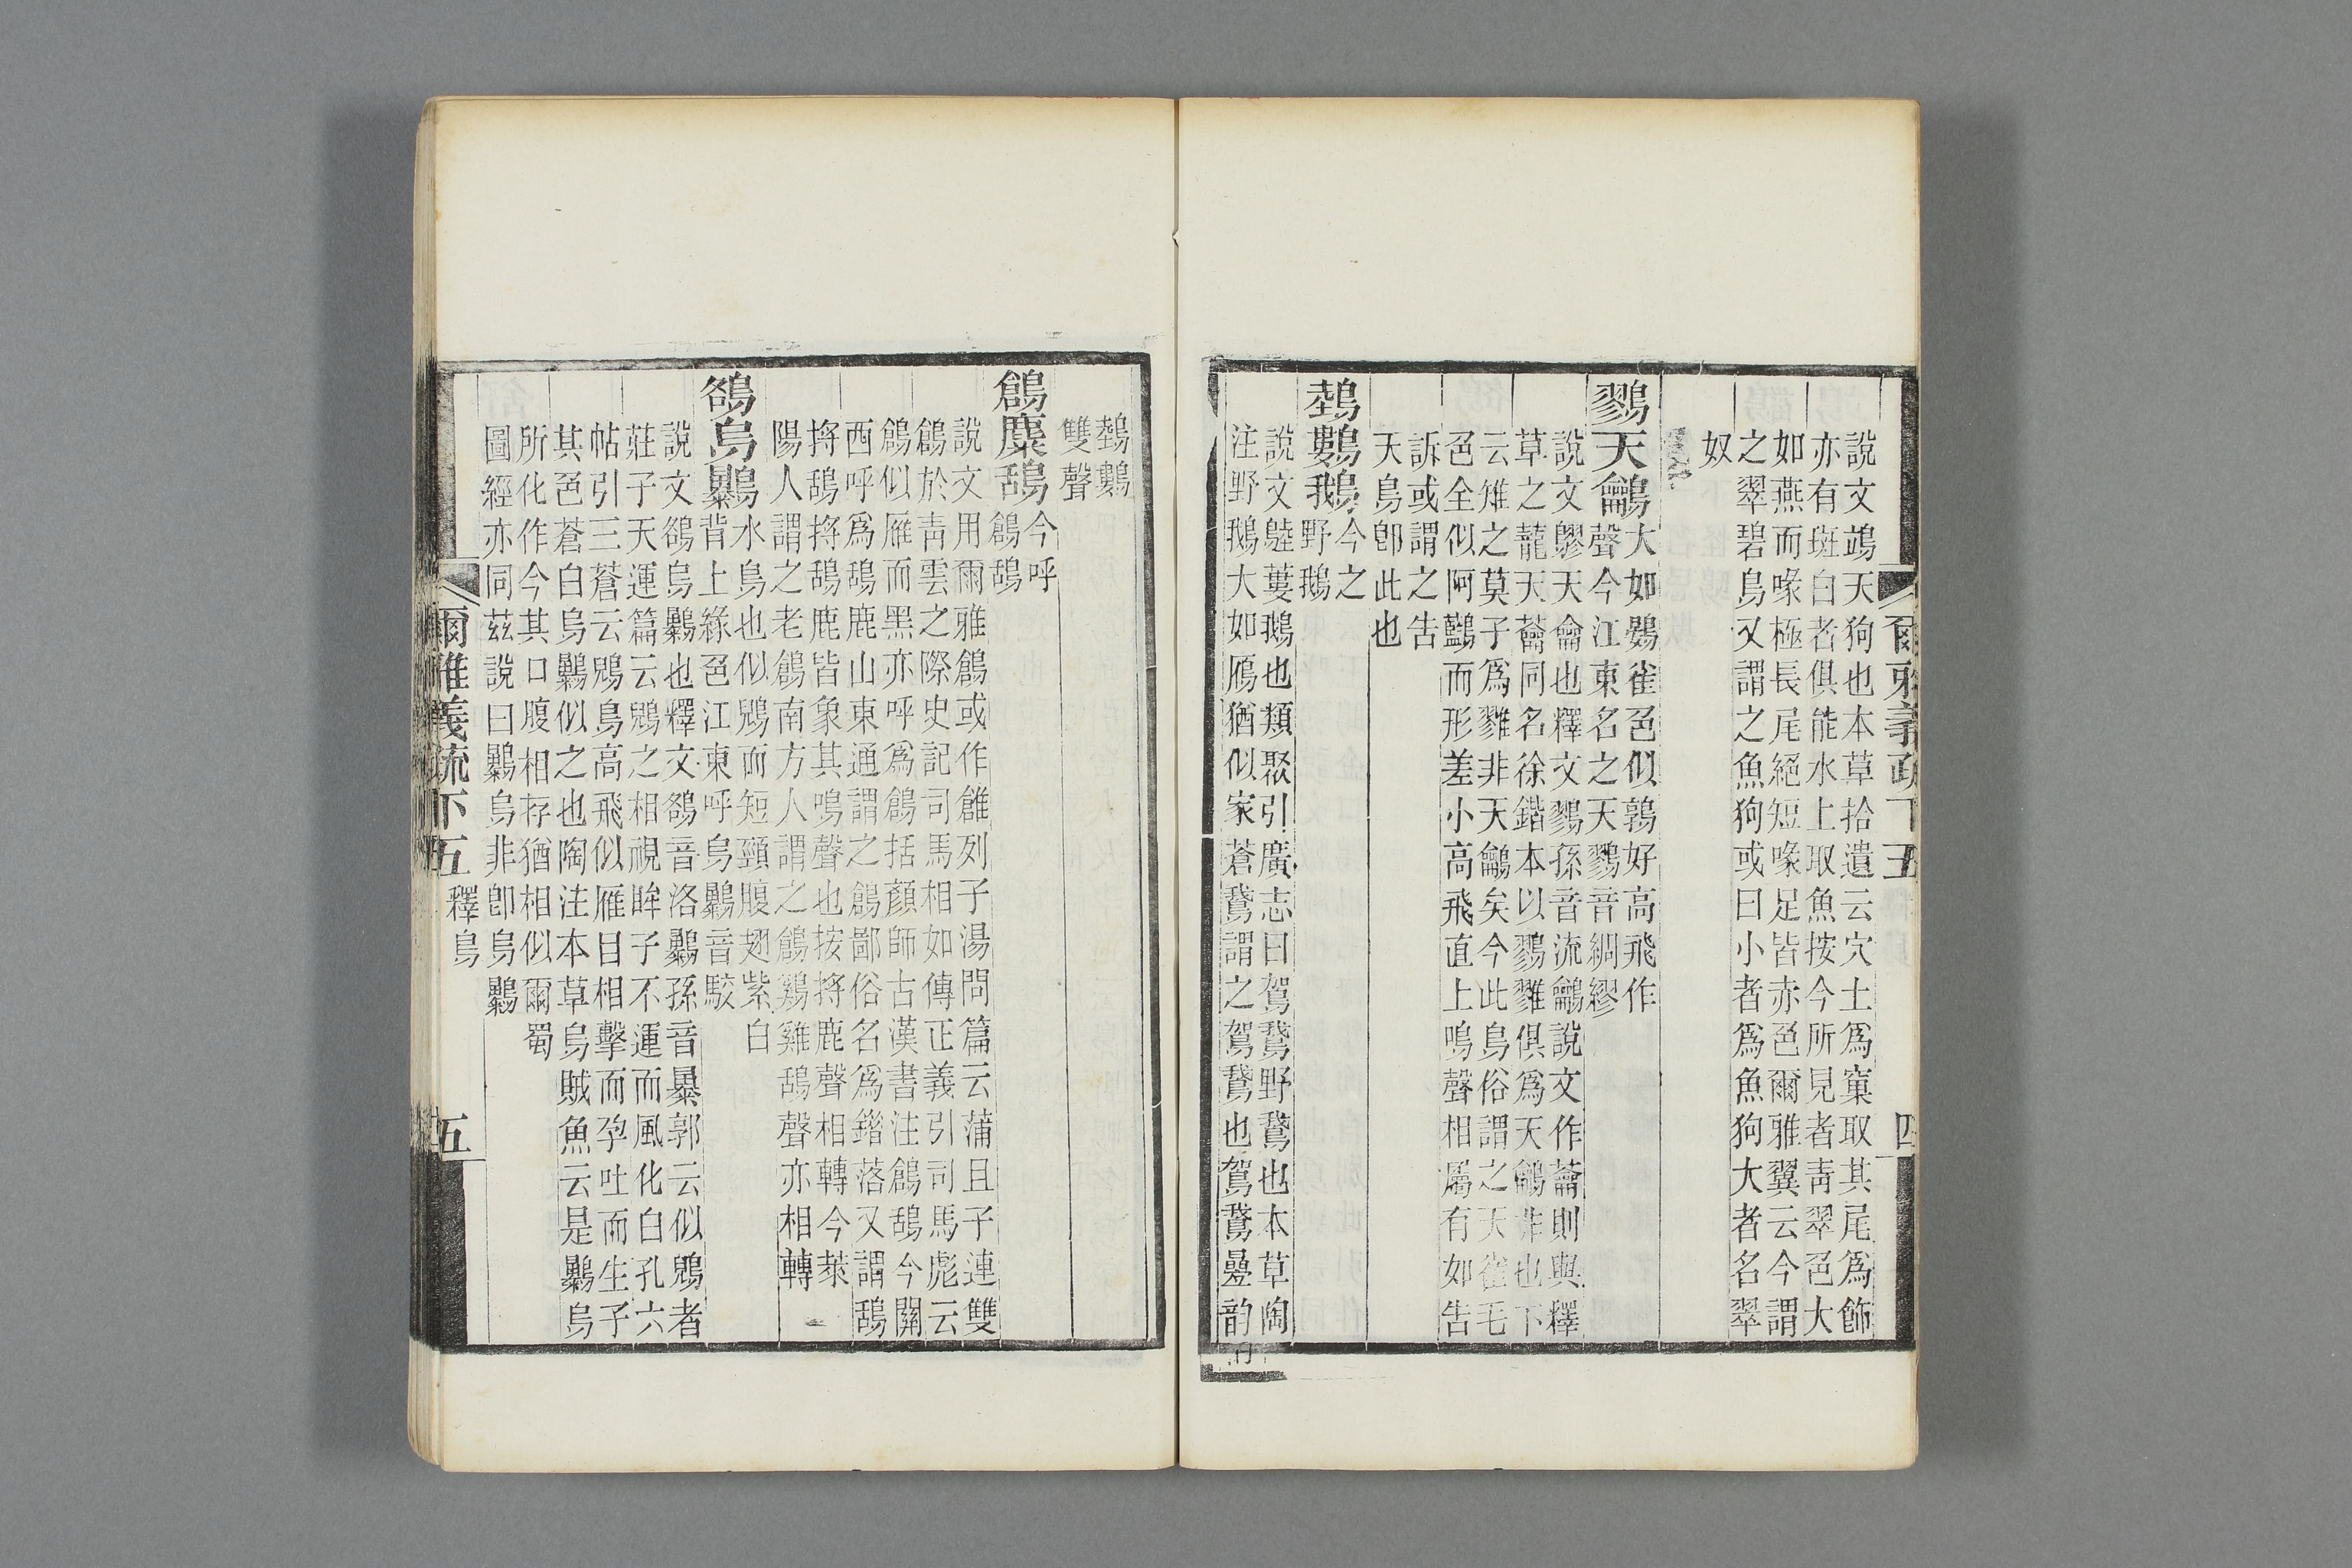 爾雅義疏下五
四
說文鴗天狗也本草拾遺云穴土爲窠取其尾爲飾
亦有斑白者俱能水上取魚按今所見者靑翠色大
如燕而喙極長尾絕短喙足皆赤色爾雅翼云今謂
之翠碧鳥又謂之魚狗或曰小者爲魚狗大者名翠
奴
鷚天鸙
大如鷃雀色似鶉好高飛作
聲今江東名之天鷚音綢繆
說文鷚天龠也釋文鷚孫音流鸙說文作蘥則與釋
草之蘢天蘥同名徐鍇本以鷚雡俱爲天鸙非也下
云雉之莫子爲雡非天鸙矣今此鳥俗謂之天雀毛
色全似阿鷜而形差小高飛直上鳴聲相屬有如告
訴或謂之告
天鳥卽此也
鵱鷜鵝
今之
野鵝
說文䳓蔞鵝也類聚引廣志曰鴐鵞野鵞也本草陶
注野鵝大如鴈猶似家蒼鵞謂之鴐鵞也鴐鵞曡韵
鵱鷜
雙聲
鶬麋鴰
今呼
鶬鴰
說文用爾雅鶬或作雝列子湯問篇云蒲且子連雙
鶬於靑雲之際史記司馬相如傳正義引司馬彪云
鶬似雁而黑亦呼爲鶬括顏師古漢書注鶬鴰今關
西呼爲鴰鹿山東通謂之鶬鄙俗名爲錯落又謂鴰
捋鴰捋鴰鹿皆象其鳴聲也按捋鹿聲相轉今萊
陽人謂之老鶬南方人謂之鶬鷄雞鴰聲亦相轉
鵅烏鸔
水鳥也似鶂而短頸腹翅紫白
背上綠色江東呼烏鸔音駮
說文鵅烏鸔也釋文鵅音洛鸔孫音暴郭云似鶂者
莊子天運篇云鶂之相視眸子不運而風化白孔六
帖引三蒼云鶂鳥高飛似雁目相擊而孕吐而生子
其色蒼白烏鸔似之也陶注本草烏賊魚云是鸔烏
所化作今其口腹相存猶相似爾蜀
圖經亦同茲說曰鸔烏非卽烏鸔
爾雅義疏下五
釋鳥
五